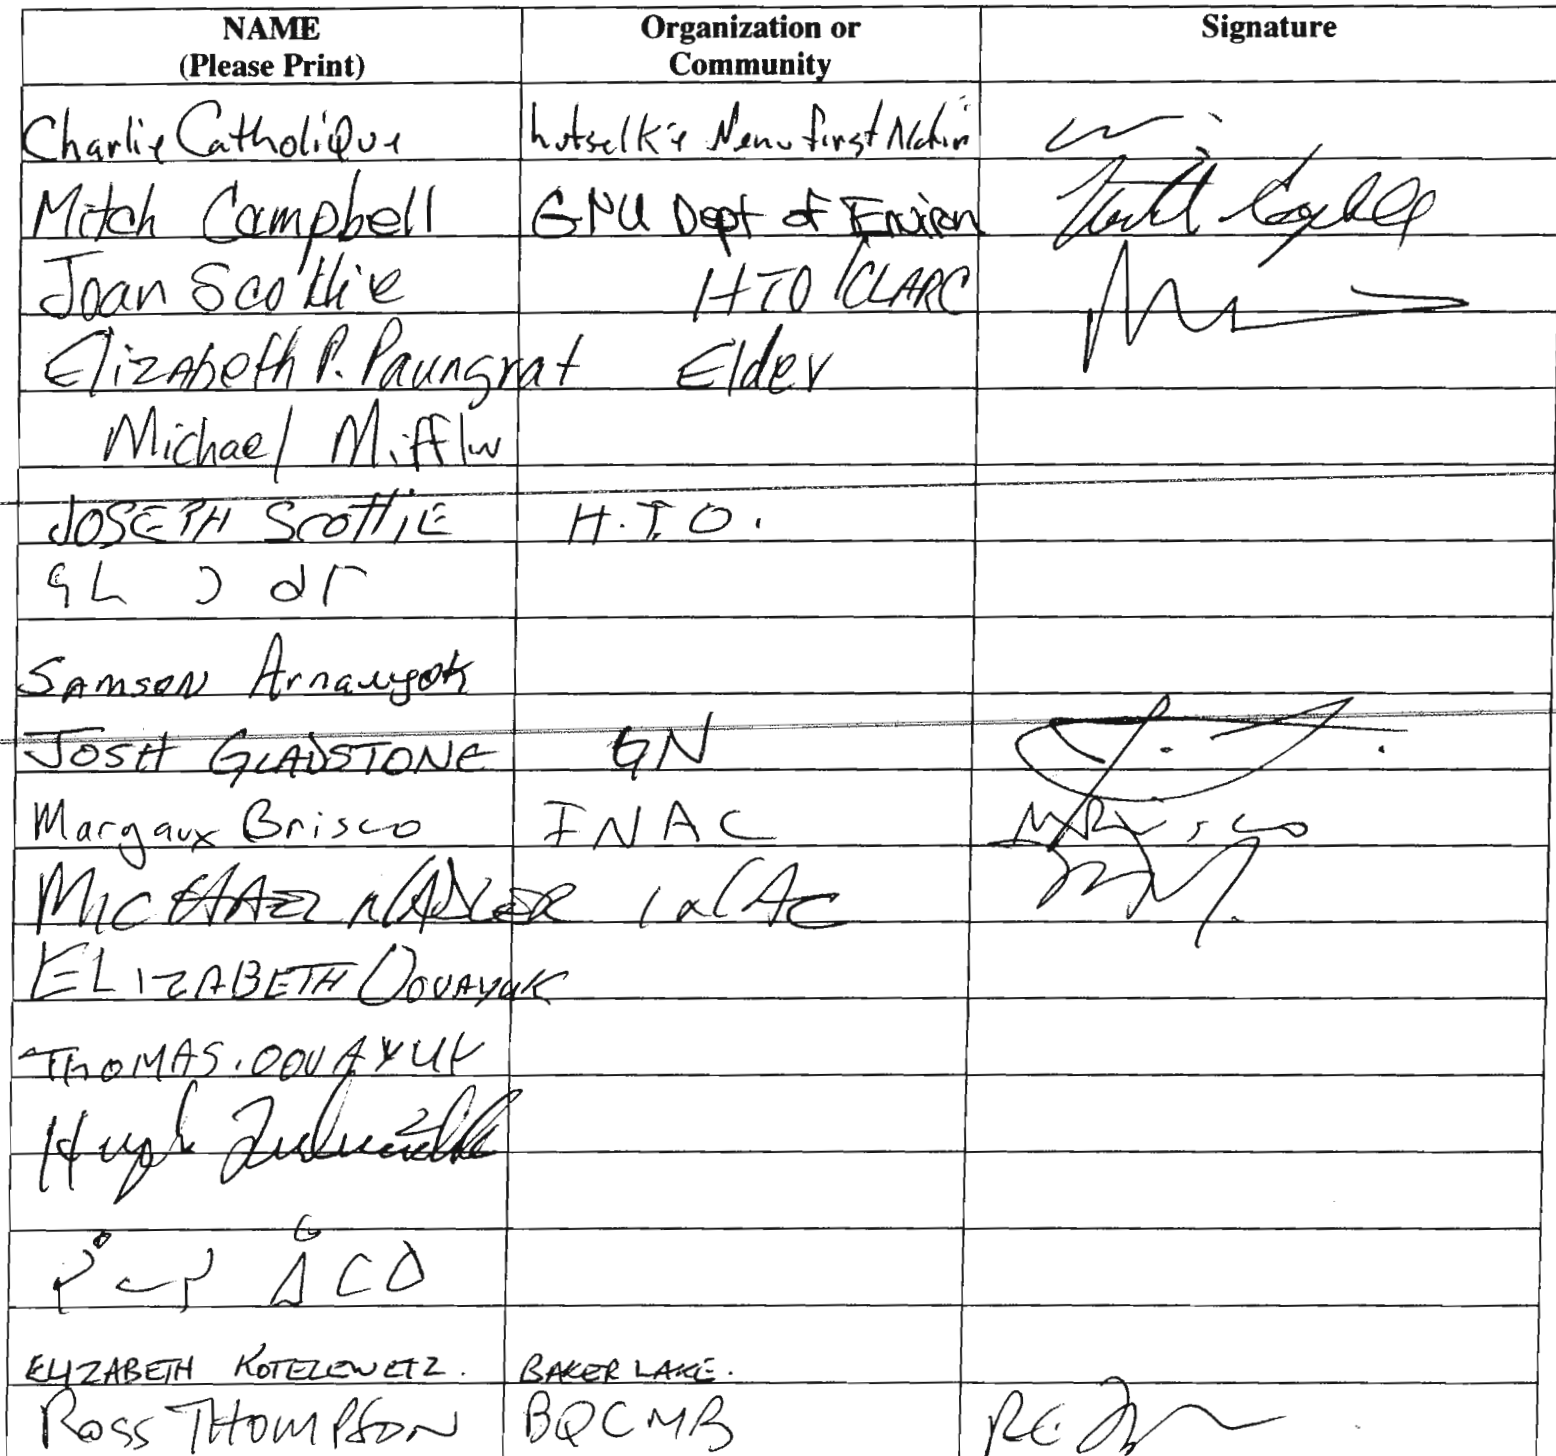 NAME Organization or Signature
(Please Print) Community
Charlie Catholique Lutselk'e Dene first Nation
Mitch Campbell GNU Dept of Environ
Joan Scottie HTO/CLARC
Elizabeth P. Paungrat Elder
Michael Mifflin
JOSEPH Scottie H.T.O.
ᕋL ᑐ ᑯᒥ
SAMSON Arnauyok
JOSH GLADSTONE GN
Margaux Brisco INAC MBrisco
MICHAEL NADLER INAC
ELIZABETH OOVAYUK
THOMAS.OOVAYUK
Hugh
ELIZABETH KOTELEWETZ. BAKER LAKE.
Ross THOMPSON BQCMB